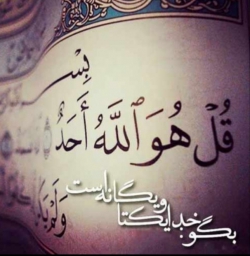 بِسْـ
قُلْ هُوَ ٱللَّهُ أَحَدٌ
بگو: خدا یکتا و یگانه است
وَلَمْ